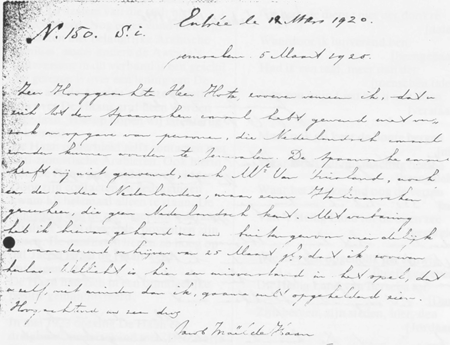 N. 150. S.i. Entrée le 12 Mars 1920.
Jerusalem. 5 Maart 1920.
Zeer Hooggeachte Heer Hotz vernam ik, dat u
zich tot den Spaanschen consul hebt gewend met
om opgave van personen, die Nederlandsch consul
zouden kunnen worden te Jeruzalem. De Spaansche consul
heeft mij niet genoemd, noch Mr. Van Vriesland, noch
een der andere Nederlanders, maar een Italiaanschen
, die geen Nederlandsch kent. Met verbazing
heb ik hiervan gehoord na uw buitengewoon vriendelijk
en waardeerend schrijven van 25 Maart jl., dat ik
. Wellicht is hier een misverstand in het spel, dat
u zelf, niet minder dan ik, gaarne zult opgehelderd zien.
Hoogachtend uw zeer dw.
Jacob Israël de Haan